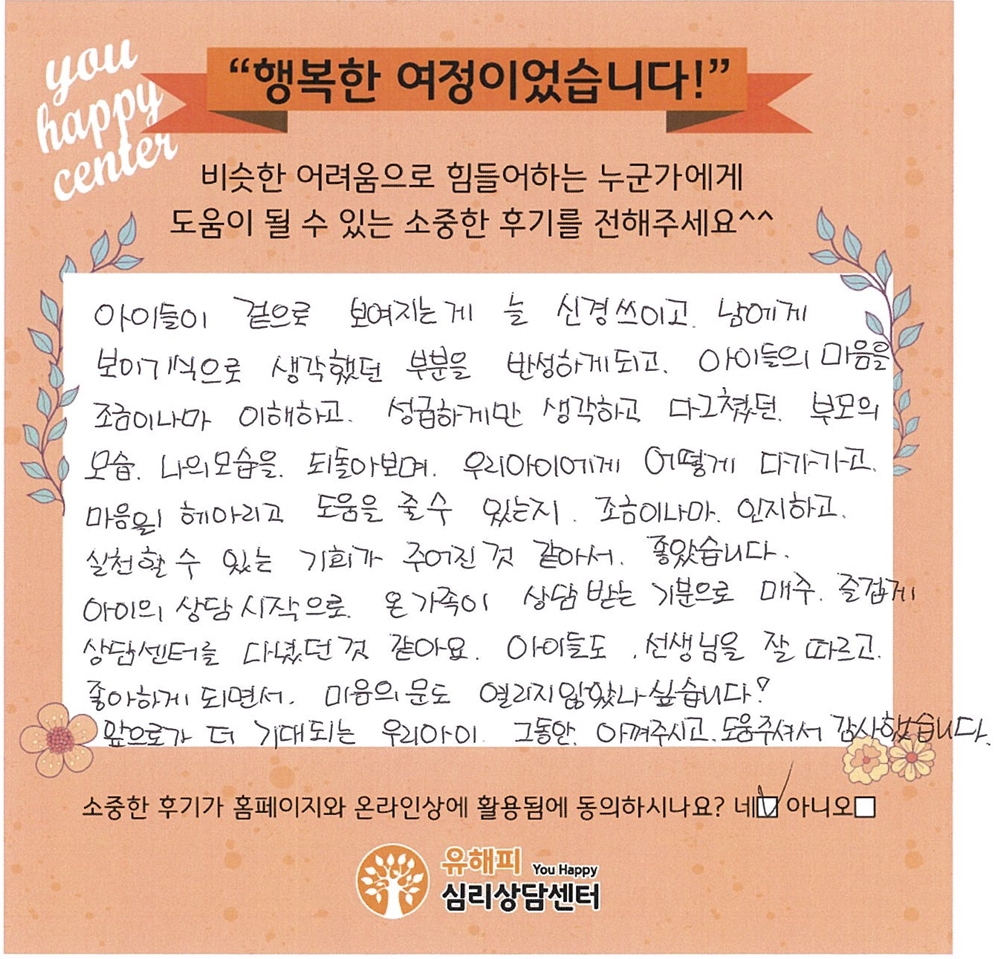 you
happy
center
“행복한 여정이었습니다!”
비슷한 어려움으로 힘들어하는 누군가에게
도움이 될 수 있는 소중한 후기를 전해주세요^^
아이들이 겉으로 보여지는게 늘 신경쓰이고. 남에게
보이기식으로 생각했던 부분을 반성하게되고. 아이들의 마음을
조금이나마 이해하고. 성급하게만 생각하고 다그쳤던. 부모의
모습. 나의모습을. 되돌아보며. 우리아이에게 어떻게 다가가고.
마음을 헤아리고 도움을 줄수 있는지. 조금이나마. 인지하고.
실천할 수 있는 기회가 주어진 것 같아서. 좋았습니다.
아이의 상담 시작으로. 온가족이 상담 받는 기분으로 매주. 즐겁게
상담센터를 다녔던것 같아요. 아이들도 . 선생님을 잘 따르고.
좋아하게 되면서. 마음의 문도 열리지않았나 싶습니다?
앞으로가 더 기대되는 우리아이. 그동안. 아껴주시고. 도움주셔서 감사했습니다.
소중한 후기가 홈페이지와 온라인상에 활용됨에 동의하시나요? 네☑ 아니오☐
유해피 You Happy
심리상담센터